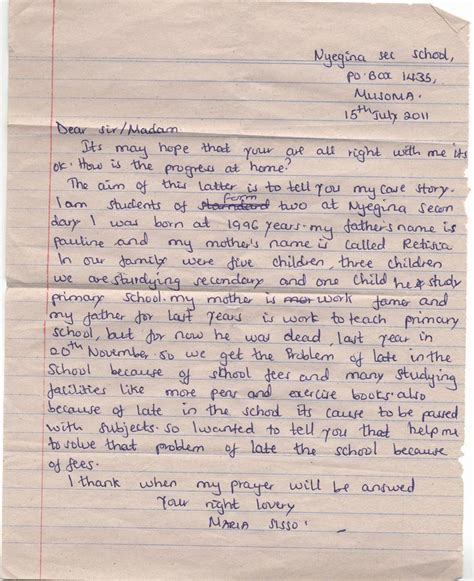 Nyegina sec school,
P.O. Box 1435,
MUSOMA.
15th July 2011
Dear sir/Madam
Its may hope that your are all right with me its
ok. How is the progress at home?
The aim of this latter is to tell you my case story.
form
I am students of starndard two at Nyegina secon
dary I was born at 1996 years. my father's name is
pauline and my mother's name is called Retisia
In our family were five children, three children
we are sturdying secondary and one child he study
primary school. my mother is work famer and
my father for last years is work to teach primary
school, but for now he was dead, last year in
20th November. so we get the Problem of late in the
school because of school fees and many studying
facilities like more pens and exercise books. also
because of late in the school its cause to be passed
with subjects. so I wanted to tell you that help me
to solve that problem of late the school because
of fees.
I thank when my prayer will be answed
Your right lovery
MARIA SISSO.